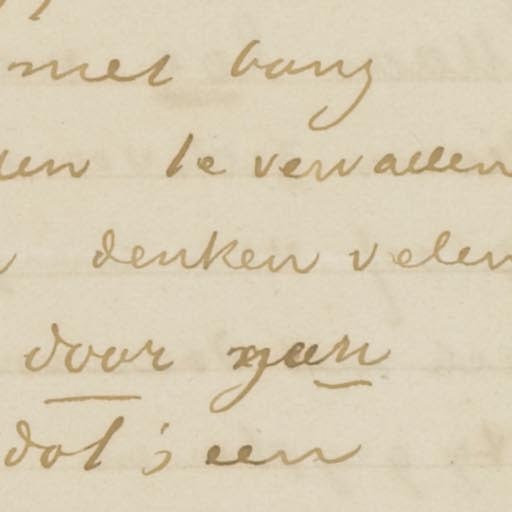 met bang
te vervallen
denken velen
door
dol; een